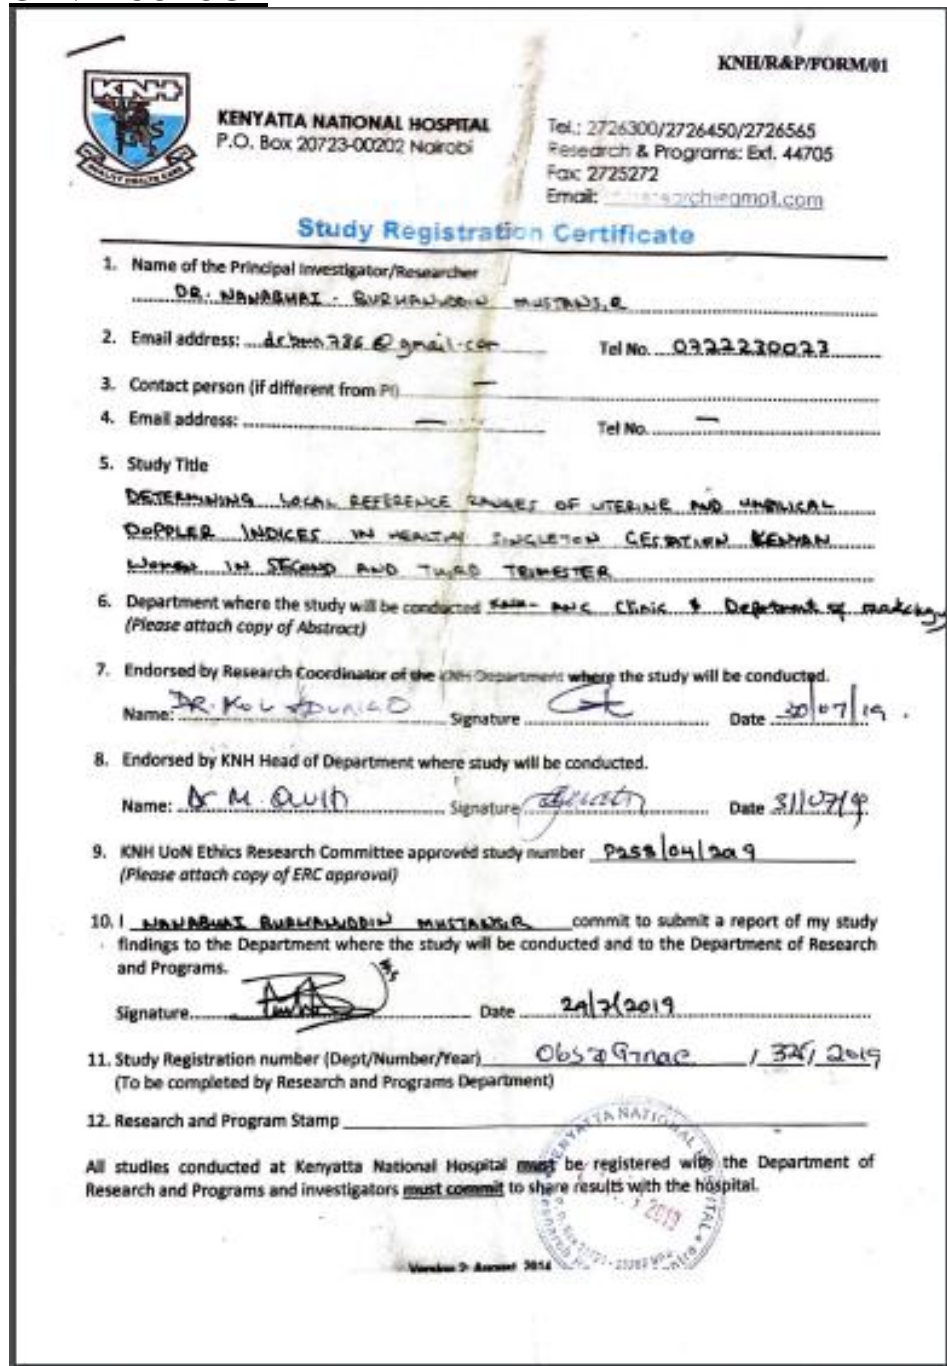 KNH/R&P/FORM/01
KNH
QUALITY HEALTH CARE
KENYATTA NATIONAL HOSPITAL
P.O. Box 20723-00202 Nairobi
Tel.: 2726300/2726450/2726565
Research & Programs: Ext. 44705
Fax: 2725272
Email:
Study Registration Certificate
1. Name of the Principal Investigator/Researcher
DR. NANABHAI - BURHANUDDIN MUSTANSIR
2. Email address: @gmail.com Tel No. 0722230023
3. Contact person (if different from PI) —
4. Email address: — Tel No. —
5. Study Title
DETERMINING LOCAL REFERENCE RANGES OF UTERINE AND UMBILICAL
DOPPLER INDICES IN HEALTHY SINGLETON GESTATION KENYAN
WOMEN IN SECOND AND THIRD TRIMESTER
6. Department where the study will be conducted KNH- ANC Clinic & Department of
(Please attach copy of Abstract)
7. Endorsed by Research Coordinator of the KNH Department where the study will be conducted.
Name: DR. Signature Date 30/07/19.
8. Endorsed by KNH Head of Department where study will be conducted.
Name: Dr M. Signature Date 31/07/19
9. KNH UoN Ethics Research Committee approved study number P258/04/2019
(Please attach copy of ERC approval)
10. I NANABHAI BURHANUDDIN MUSTANSIR commit to submit a report of my study
findings to the Department where the study will be conducted and to the Department of Research
and Programs.
Signature Date 29/7/2019
11. Study Registration number (Dept/Number/Year) / 2019
(To be completed by Research and Programs Department)
12. Research and Program Stamp
KENYATTA NATIONAL HOSPITAL
2019
All studies conducted at Kenyatta National Hospital must be registered with the Department of
Research and Programs and investigators must commit to share results with the hospital.
Version 2: August 2014